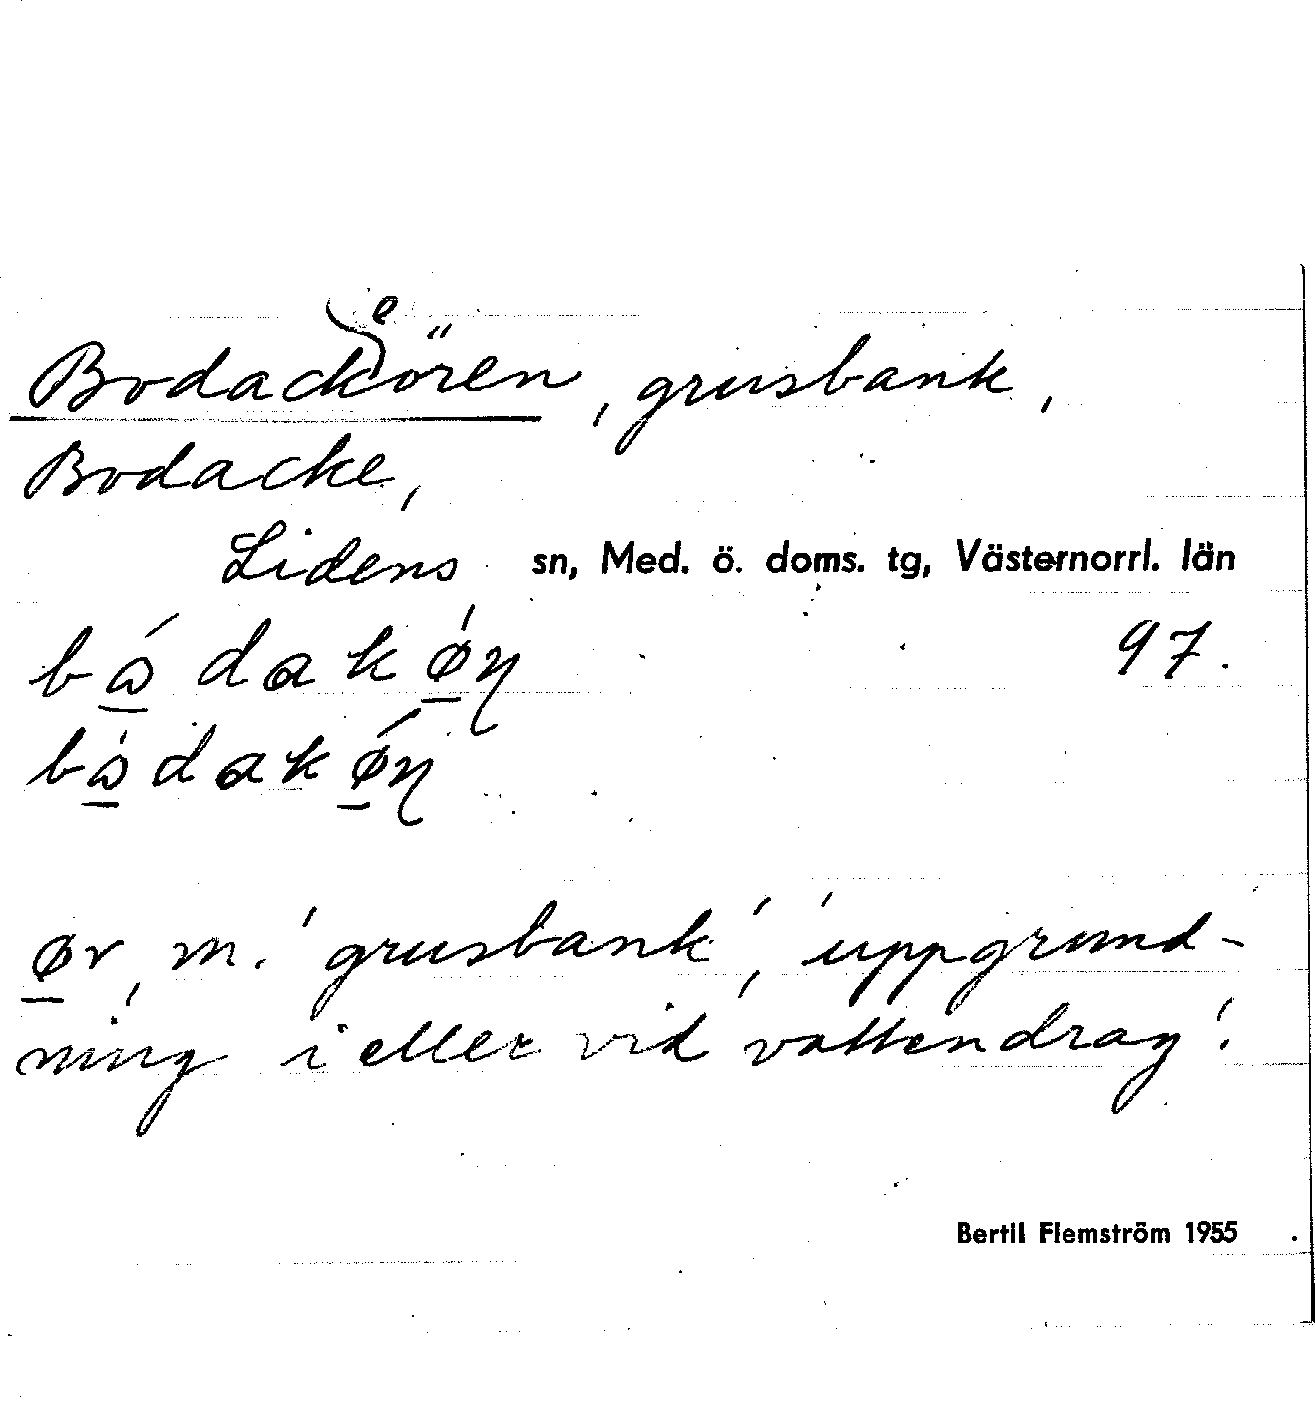 Bodackeören, grusbank,
Bodacke,
Lidens sn, Med. ö. doms. tg, Västernorrl. län
97.
ør, m. 'grusbank', 'uppgrund-
ning i eller vid vattendrag'.
Bertil Flemström 1955